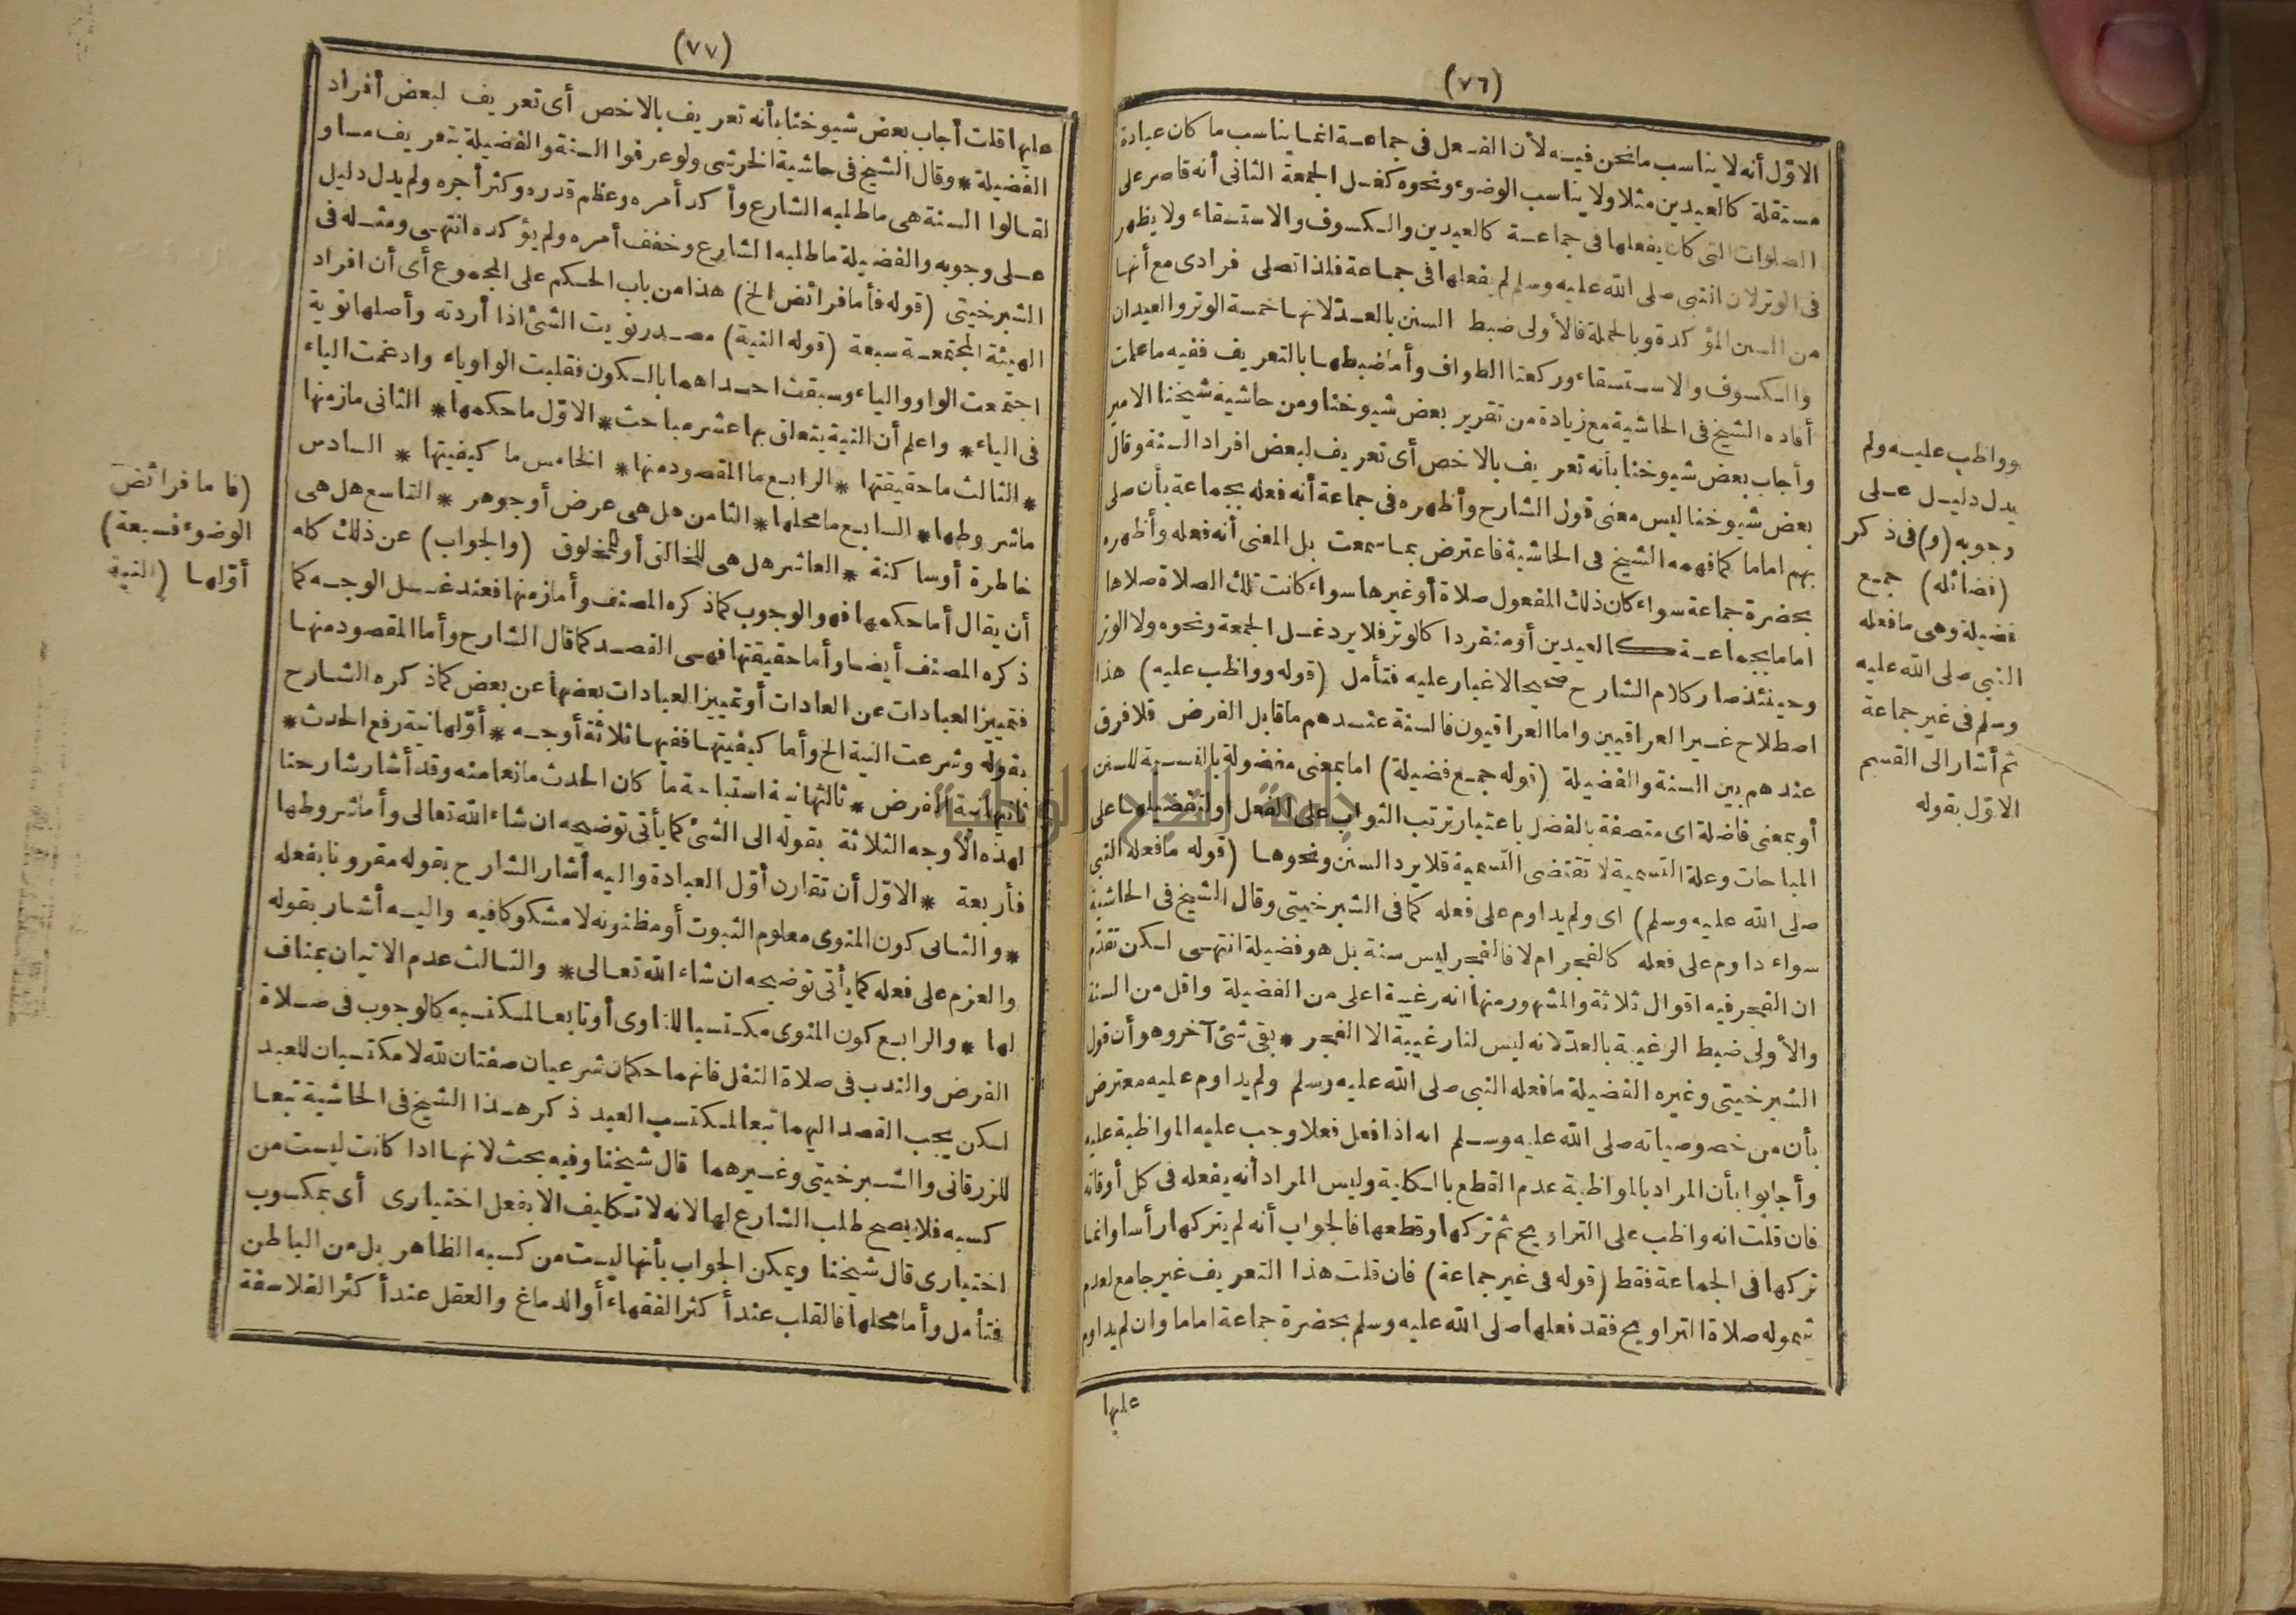 (٧٦)
الاوّل أنه لا يناسب ما نحن فيه لأن الفعل فى جماعة انما يناسب ما كان عبادة
مستقلة كالعيدين مثلا ولا يناسب الوضوء ونحوه كغسل الجمعة الثانى أنه قاصر على
الصلوات التى كان يفعلها فى جماعة كالعيدين والكسوف والاستسقاء ولا يظهر
فى الوتر لان النبى صلى الله عليه وسلم لم يفعلها فى جماعة فلذا تصلى فرادى مع أنها
من السنن المؤكدة وبالجملة فالأولى ضبط السنن بالعدّ لانها خمسة الوتر والعيدان
والكسوف والاستسقاء وركعتا الطواف وأما ضبطها بالتعريف ففيه ما علمت
أفاده الشيخ فى الحاشية مع زيادة من تقرير بعض شيوخنا ومن حاشية شيخنا الامير
وأجاب بعض شيوخنا بأنه تعريف بالاخص أى تعريف لبعض افراد السنة وقال
بعض شيوخنا ليس معنى قول الشارح وأظهره فى جماعة أنه فعله بجماعة بأن صلى
بهم اماما كما فهمه الشيخ فى الحاشية فاعترض بما سمعت بل المعنى أنه فعله وأظهره
بحضرة جماعة سواء كان ذلك المفعول صلاة أو غيرها سواء كانت تلك الصلاة صلاها
اماما بجماعة كالعيدين أو منفردا كالوتر فلا يرد غسل الجمعة ونحوه ولا الوتر
وحينئذ صار كلام الشارح صحيحا لاغبار عليه فتأمل (قوله وواظب عليه) هذا
اصطلاح غير العراقيين واما العراقيون فالسنة عندهم ما قابل الفرض فلا فرق
عندهم بين السنة والفضيلة (قوله جمع فضيلة) اما بمعنى مفضولة بالنسبة للسنن
أو بمعنى فاضلة اى متصفة بالفضل باعتبار ترتب الثواب على الفعل أو لتفضيلها على
المباحات وعلة التسمية لا تقتضى التسمية فلا يرد السنن ونحوها (قوله ما فعله النبى
صلى الله عليه وسلم) اى ولم يداوم على فعله كما فى الشبرخيتى وقال الشيخ فى الحاشية
سواء داوم على فعله كالفجر ام لا فالفجر ليس سنة بل هو فضيلة انتهى لكن تقدّم
ان الفجر فيه اقوال ثلاثة والمشهور منها انه رغيبة اعلى من الفضيلة واقل من السنة
والأولى ضبط الرغيبة بالعدّ لانه ليس لنا رغيبة الا الفجر * بقى شئ آخر وهو أن قول
الشبرخيتى وغيره الفضيلة ما فعله النبى صلى الله عليه وسلم ولم يداوم عليه معترض
بأن من خصوصياته صلى الله عليه وسلم انه اذا فعل فعلا وجب عليه المواظبة عليه
وأجابوا بأن المراد بالمواظبة عدم القطع بالكلية وليس المراد أنه يفعله فى كل أوقاته
فان قلت انه واظب على التراويح ثم تركها وقطعها فالجواب أنه لم يتركها رأسا وانما
تركها فى الجماعة فقط (قوله فى غير جماعة) فان قلت هذا التعريف غير جامع لعدم
شموله صلاة التراويح فقد فعلها صلى الله عليه وسلم بحضرة جماعة اماما وان لم يداوم
عليها
وواظب عليه ولم
يدل دليل على
وجوبه (و) فى ذكر
(فضائله) جمع
فضيلة وهى ما فعله
النبى صلى الله عليه
وسلم فى غير جماعة
ثم أشار الى القسم
الاوّل بقوله
(٧٧)
عليها قلت أجاب بعض شيوخنا بأنه تعريف بالاخص أى تعريف لبعض أفراد
الفضيلة * وقال الشيخ فى حاشية الخرشى ولو عرفوا السنة والفضيلة بتعريف مساو
لقالوا السنة هى ما طلبه الشارع وأكد أمره وعظم قدره وكثر أجره ولم يدل دليل
على وجوبه والفضيلة ما طلبه الشارع وخفف أمره ولم يؤكده انتهى ومثله فى
الشبرخيتى (قوله فأما فرائض الخ) هذا من باب الحكم على المجموع أى أن افراد
الهيئة المجتمعة سبعة (قوله النية) مصدر نويت الشئ اذا أردته وأصلها نوية
اجتمعت الواو والياء وسبقت احداهما بالسكون فقلبت الواو ياء وادغمت الياء
فى الياء * واعلم أن النية يتعلق بها عشر مباحث * الاوّل ما حكمها * الثانى ما زمنها
* الثالث ما حقيقتها * الرابع ما المقصود منها * الخامس ما كيفيتها * السادس
ما شروطها * السابع ما محلها * الثامن هل هى عرض أو جوهر * التاسع هل هى
خاطرة أو ساكنة * العاشر هل هى للخالق أو للمخلوق (والجواب) عن ذلك كله
أن يقال أما حكمها فهو الوجوب كما ذكره المصنف وأما زمنها فعند غسل الوجه كما
ذكره المصنف أيضا وأما حقيقتها فهى القصد كما قال الشارح وأما المقصود منها
فتمييز العبادات عن العادات أو تمييز العبادات بعضها عن بعض كما ذكره الشارح
بقوله وشرعت النية الخ وأما كيفيتها ففيها ثلاثة أوجه * أوّلها نية رفع الحدث *
ثانيها نية الفرض * ثالثها نية استباحة ما كان الحدث مانعا منه وقد أشار شارحنا
لهذه الأوجه الثلاثة بقوله الى الشئ كما يأتى توضيحه ان شاء الله تعالى وأما شروطها
فأربعة * الاوّل أن تقارن أوّل العبادة واليه أشار الشارح بقوله مقرونا بفعله
* والثانى كون المنوى معلوم الثبوت أو مظنونه لا مشكوكا فيه واليه أشار بقوله
والعزم على فعله كما يأتى توضيحه ان شاء الله تعالى * والثالث عدم الاتيان بمناف
لها * والرابع كون المنوى مكتسبا للناوى أو تابعا لمكتسبه كالوجوب فى صلاة
الفرض والندب فى صلاة النفل فانهما حكمان شرعيان صفتان لله لا مكتسبان للعبد
لكن يجب القصد اليهما تبعا لمكتسب العبد ذكر هذا الشيخ فى الحاشية تبعا
للزرقانى والشبرخيتى وغيرهما قال شيخنا وفيه بحث لانها اذا كانت ليست من
كسبه فلا يصح طلب الشارع لها لانه لا تكليف الا بفعل اختيارى أى بمكسوب
اختيارى قال شيخنا ويمكن الجواب بأنها ليست من كسبه الظاهر بل من الباطن
فتأمل وأما محلها فالقلب عند أكثر الفقهاء أو الدماغ والعقل عند أكثر الفلاسفة
(فاما فرائض
الوضوء فسبعة)
أوّلها (النية
جامعة النجاح الوطنية